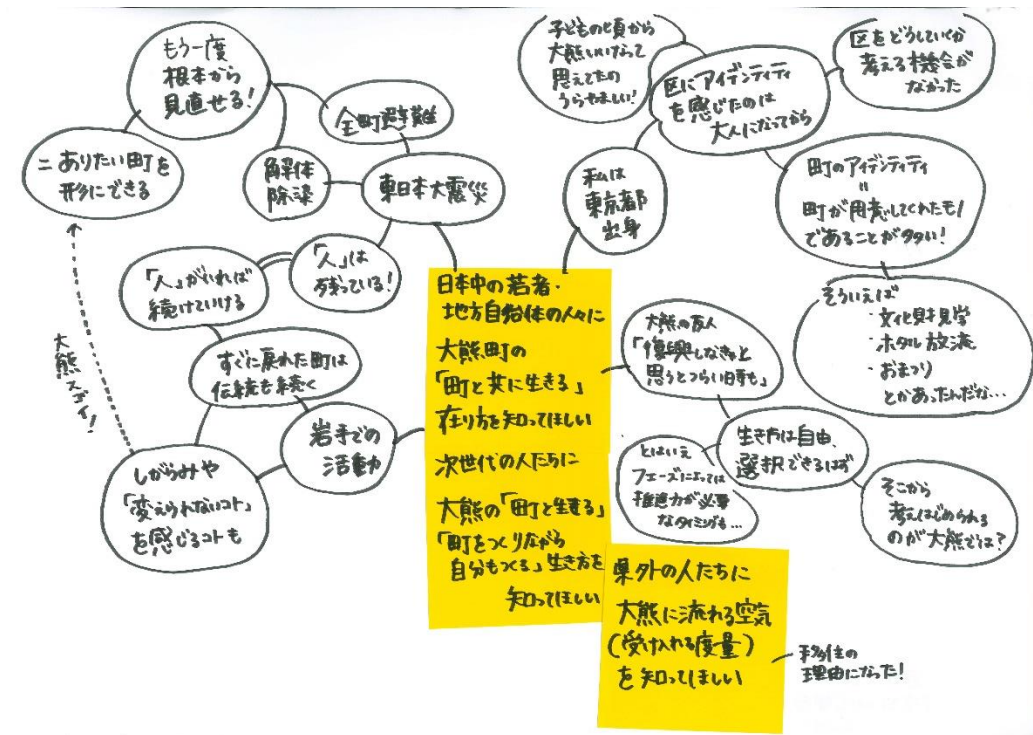 もう一度
根本から
見直せる!
全町避難
=ありたい町を
形にできる
解体
除染
東日本大震災
「人」は
残っている!
「人」がいれば
続けていける
すぐに戻れた町は
伝統も続く
岩手での
活動
しがらみや
「変えられないコト」
を感じるコトも
大熊スゴイ!
子どもの頃から
大熊いいなって
思えてたの
うらやましい!
区にアイデンティティ
を感じたのは
大人になってから
区をどうしていくか
考える機会が
なかった
私は
東京都
出身
町のアイデンティティ
=
町が用意してくれたモノ
であることが多い!
そういえば
・文化財見学
・ホタル放流
・おまつり
とかあったんだな…
日本中の若者・
地方自治体の人々に
大熊町の
「町と共に生きる」
在り方を知ってほしい
次世代の人たちに
大熊の「町と生きる」
「町をつくりながら
自分もつくる」生き方を
知ってほしい
大熊の友人
「復興しなきゃと
思うとつらい時も」
生き方は自由、
選択できるはず
とはいえ
フェーズによっては
推進力が必要
なタイミングも…
そこから
考えはじめられる
のが大熊では?
県外の人たちに
大熊に流れる空気
(受け入れる度量)
を知ってほしい
移住の
理由になった!